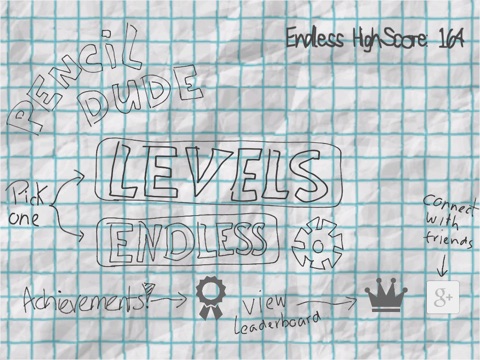 Endless HighScore 164
PENCIL
DUDE
LEVELS
Pick
one
ENDLESS
Connect
with
friends
Achievements!
View
leaderboard
g+